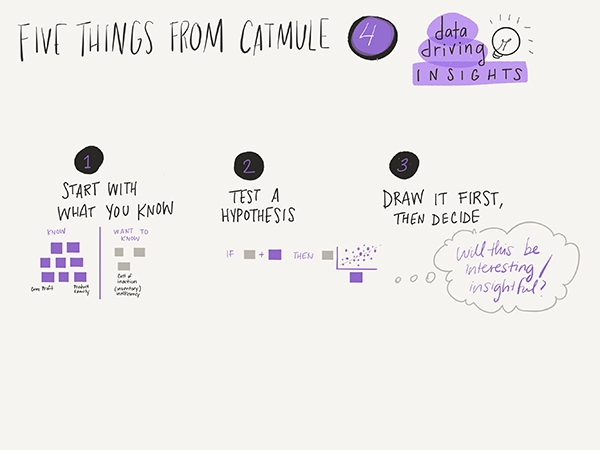 FIVE THINGS FROM CATMULE 4
data
driving
INSIGHTS
1
START WITH
WHAT YOU KNOW
KNOW
WANT TO
KNOW
Gross Profit
Product
Family
Cost of
inaction
(inventory)
inefficiency
2
TEST A
HYPOTHESIS
IF + THEN
3
DRAW IT FIRST,
THEN DECIDE
Will this be
interesting/
insightful?